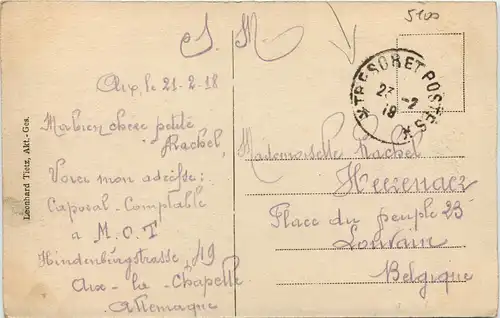 S. M
5100
Aix, le 21-2-18
Ma bien chère petite
Rachel,
Voici mon adresse:
Caporal-Comptable
a M.O.T
Hindenburgstrasse, 19
Aix-la-Chapelle
Allemagne
Leonhard Tietz, Akt.-Ges.
*TRESOR ET POSTES*
23-2
Mademoiselle Rachel
Place du peuple 23
Louvain
Belgique